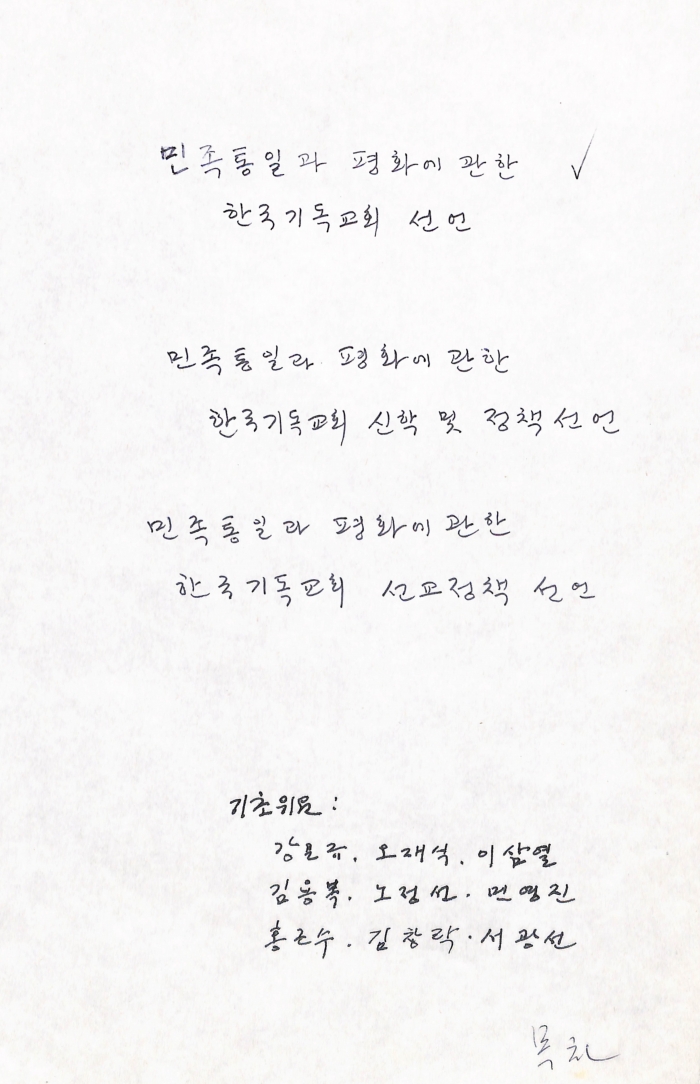 민족통일과 평화에 관한 ✓
한국기독교회 선언
민족통일과 평화에 관한
한국기독교회 신학 및 정책선언
민족통일과 평화에 관한
한국기독교회 선교정책 선언
기초위원 :
강문규. 오재식. 이삼열
김용복. 노정선. 민영진
홍근수. 김창락. 서광선
목차